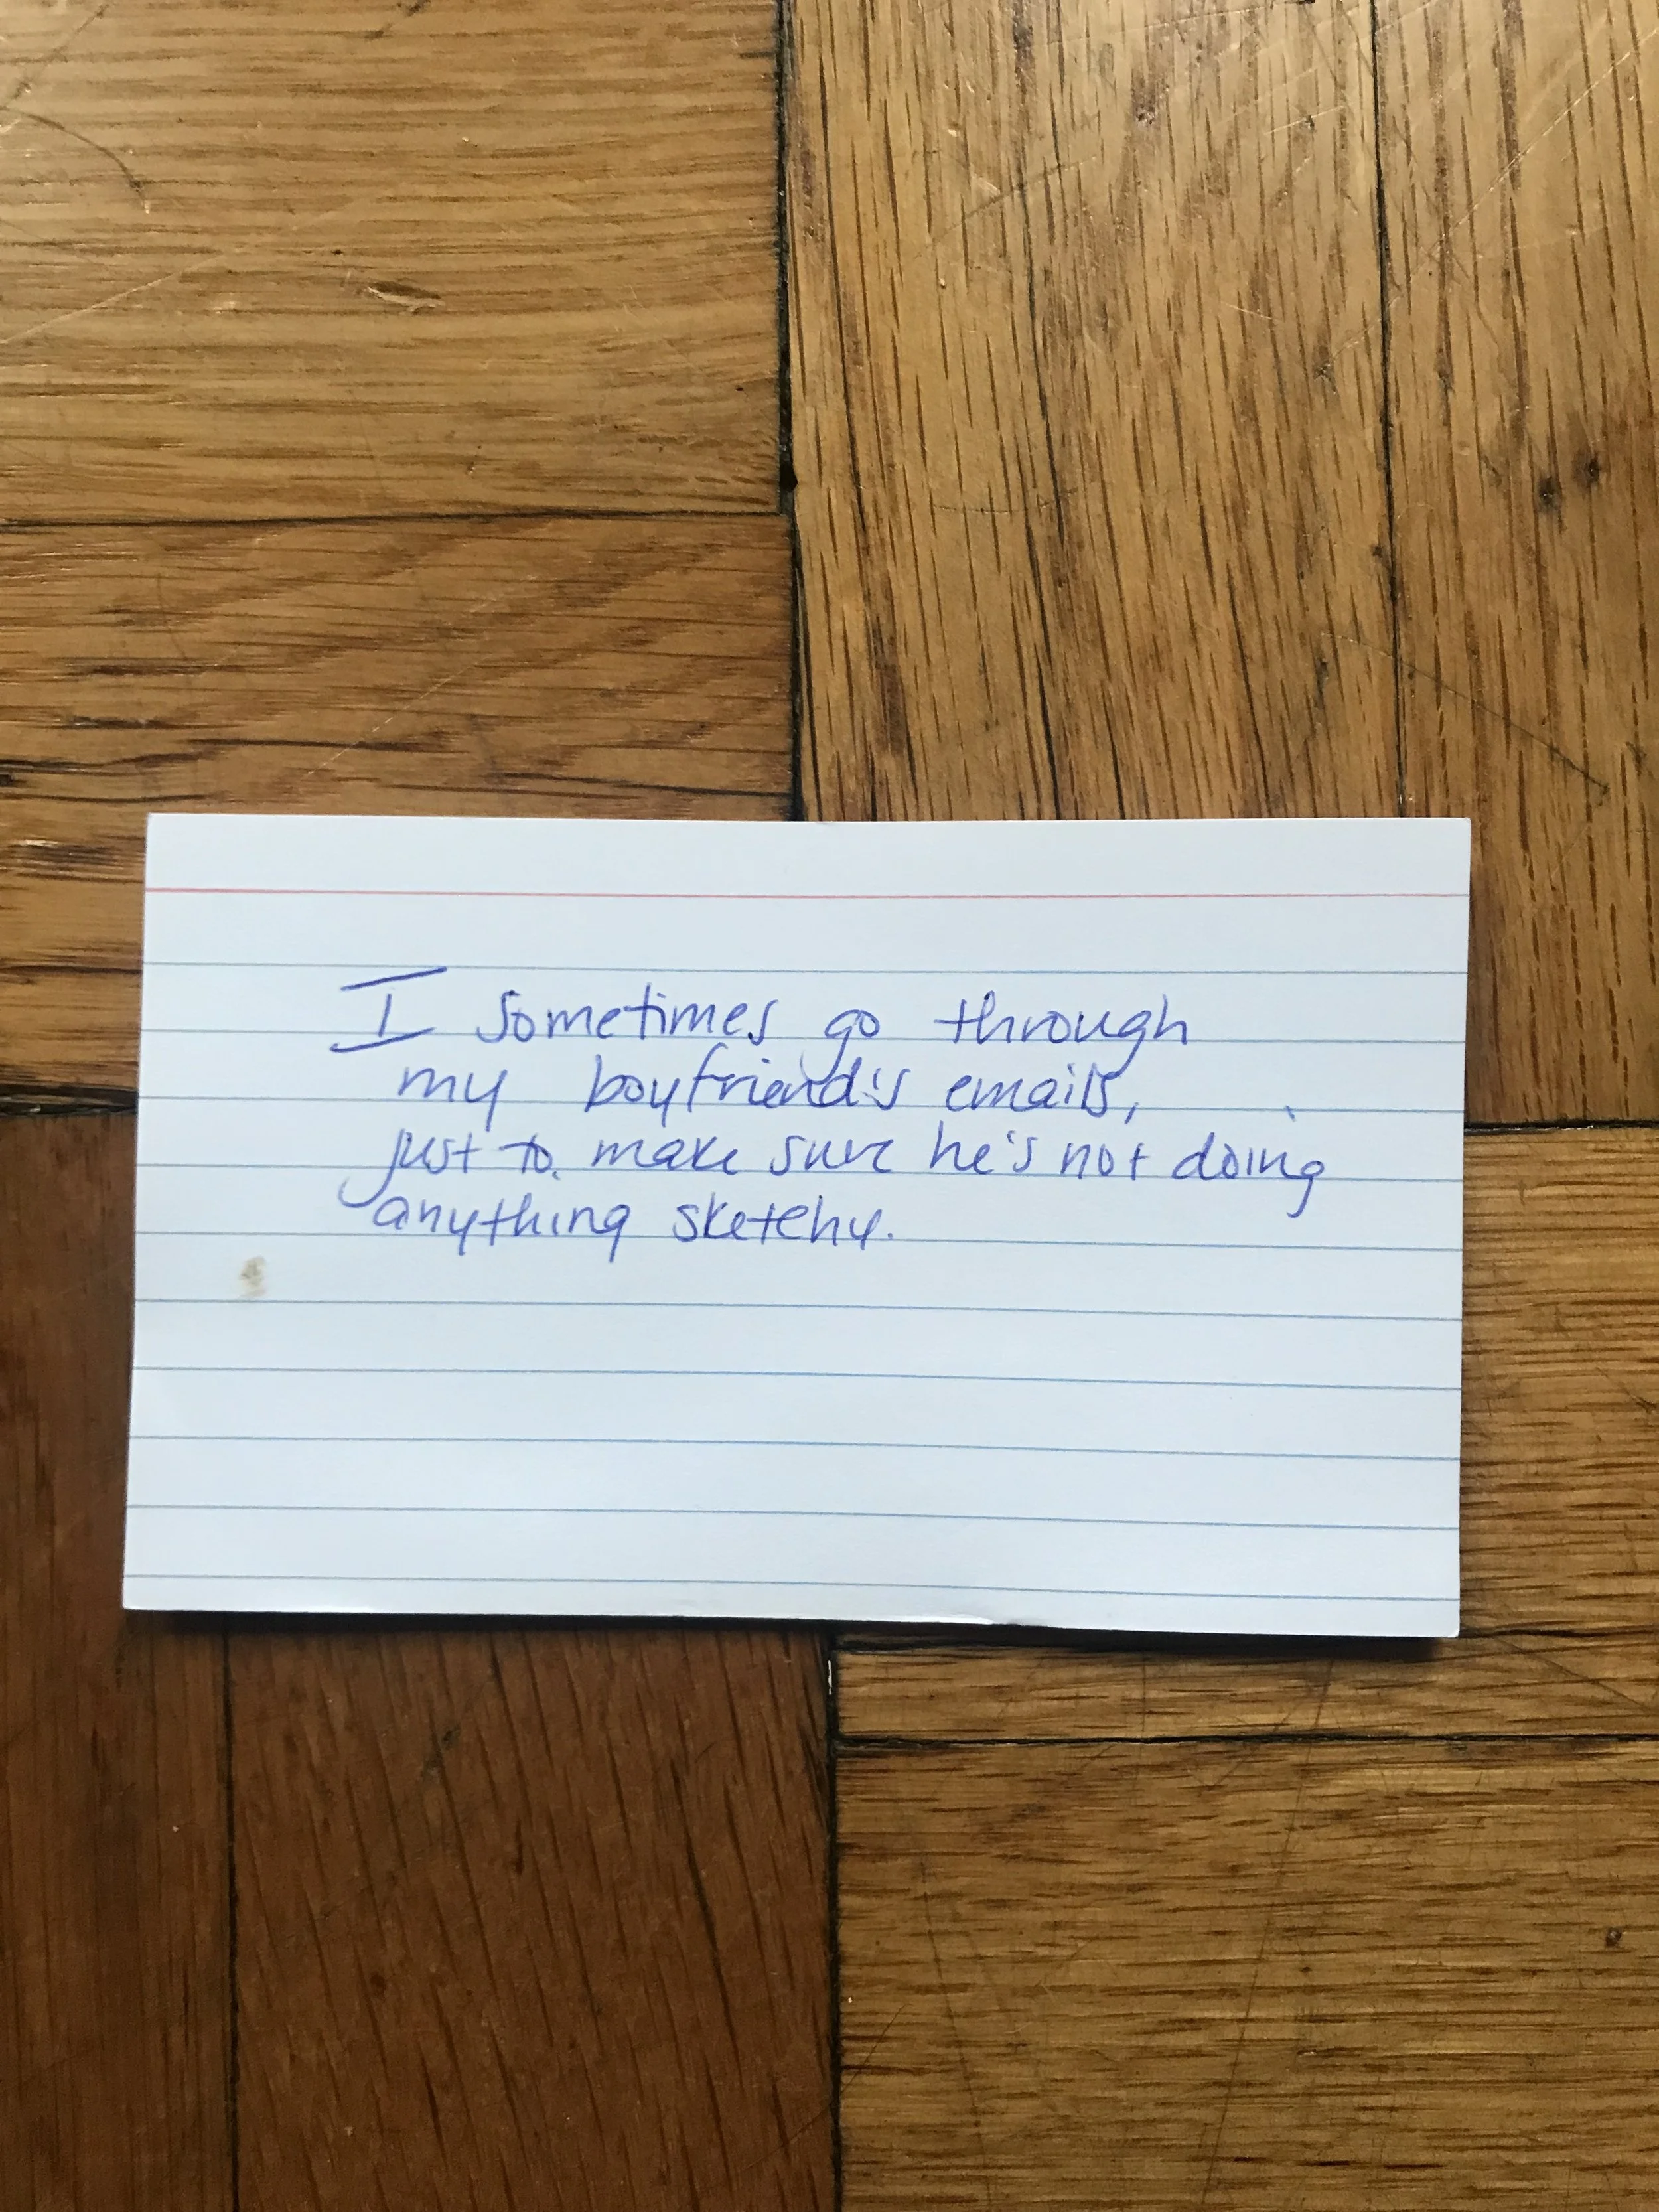 I sometimes go through
my boyfriend's emails,
just to make sure he's not doing
anything sketchy.